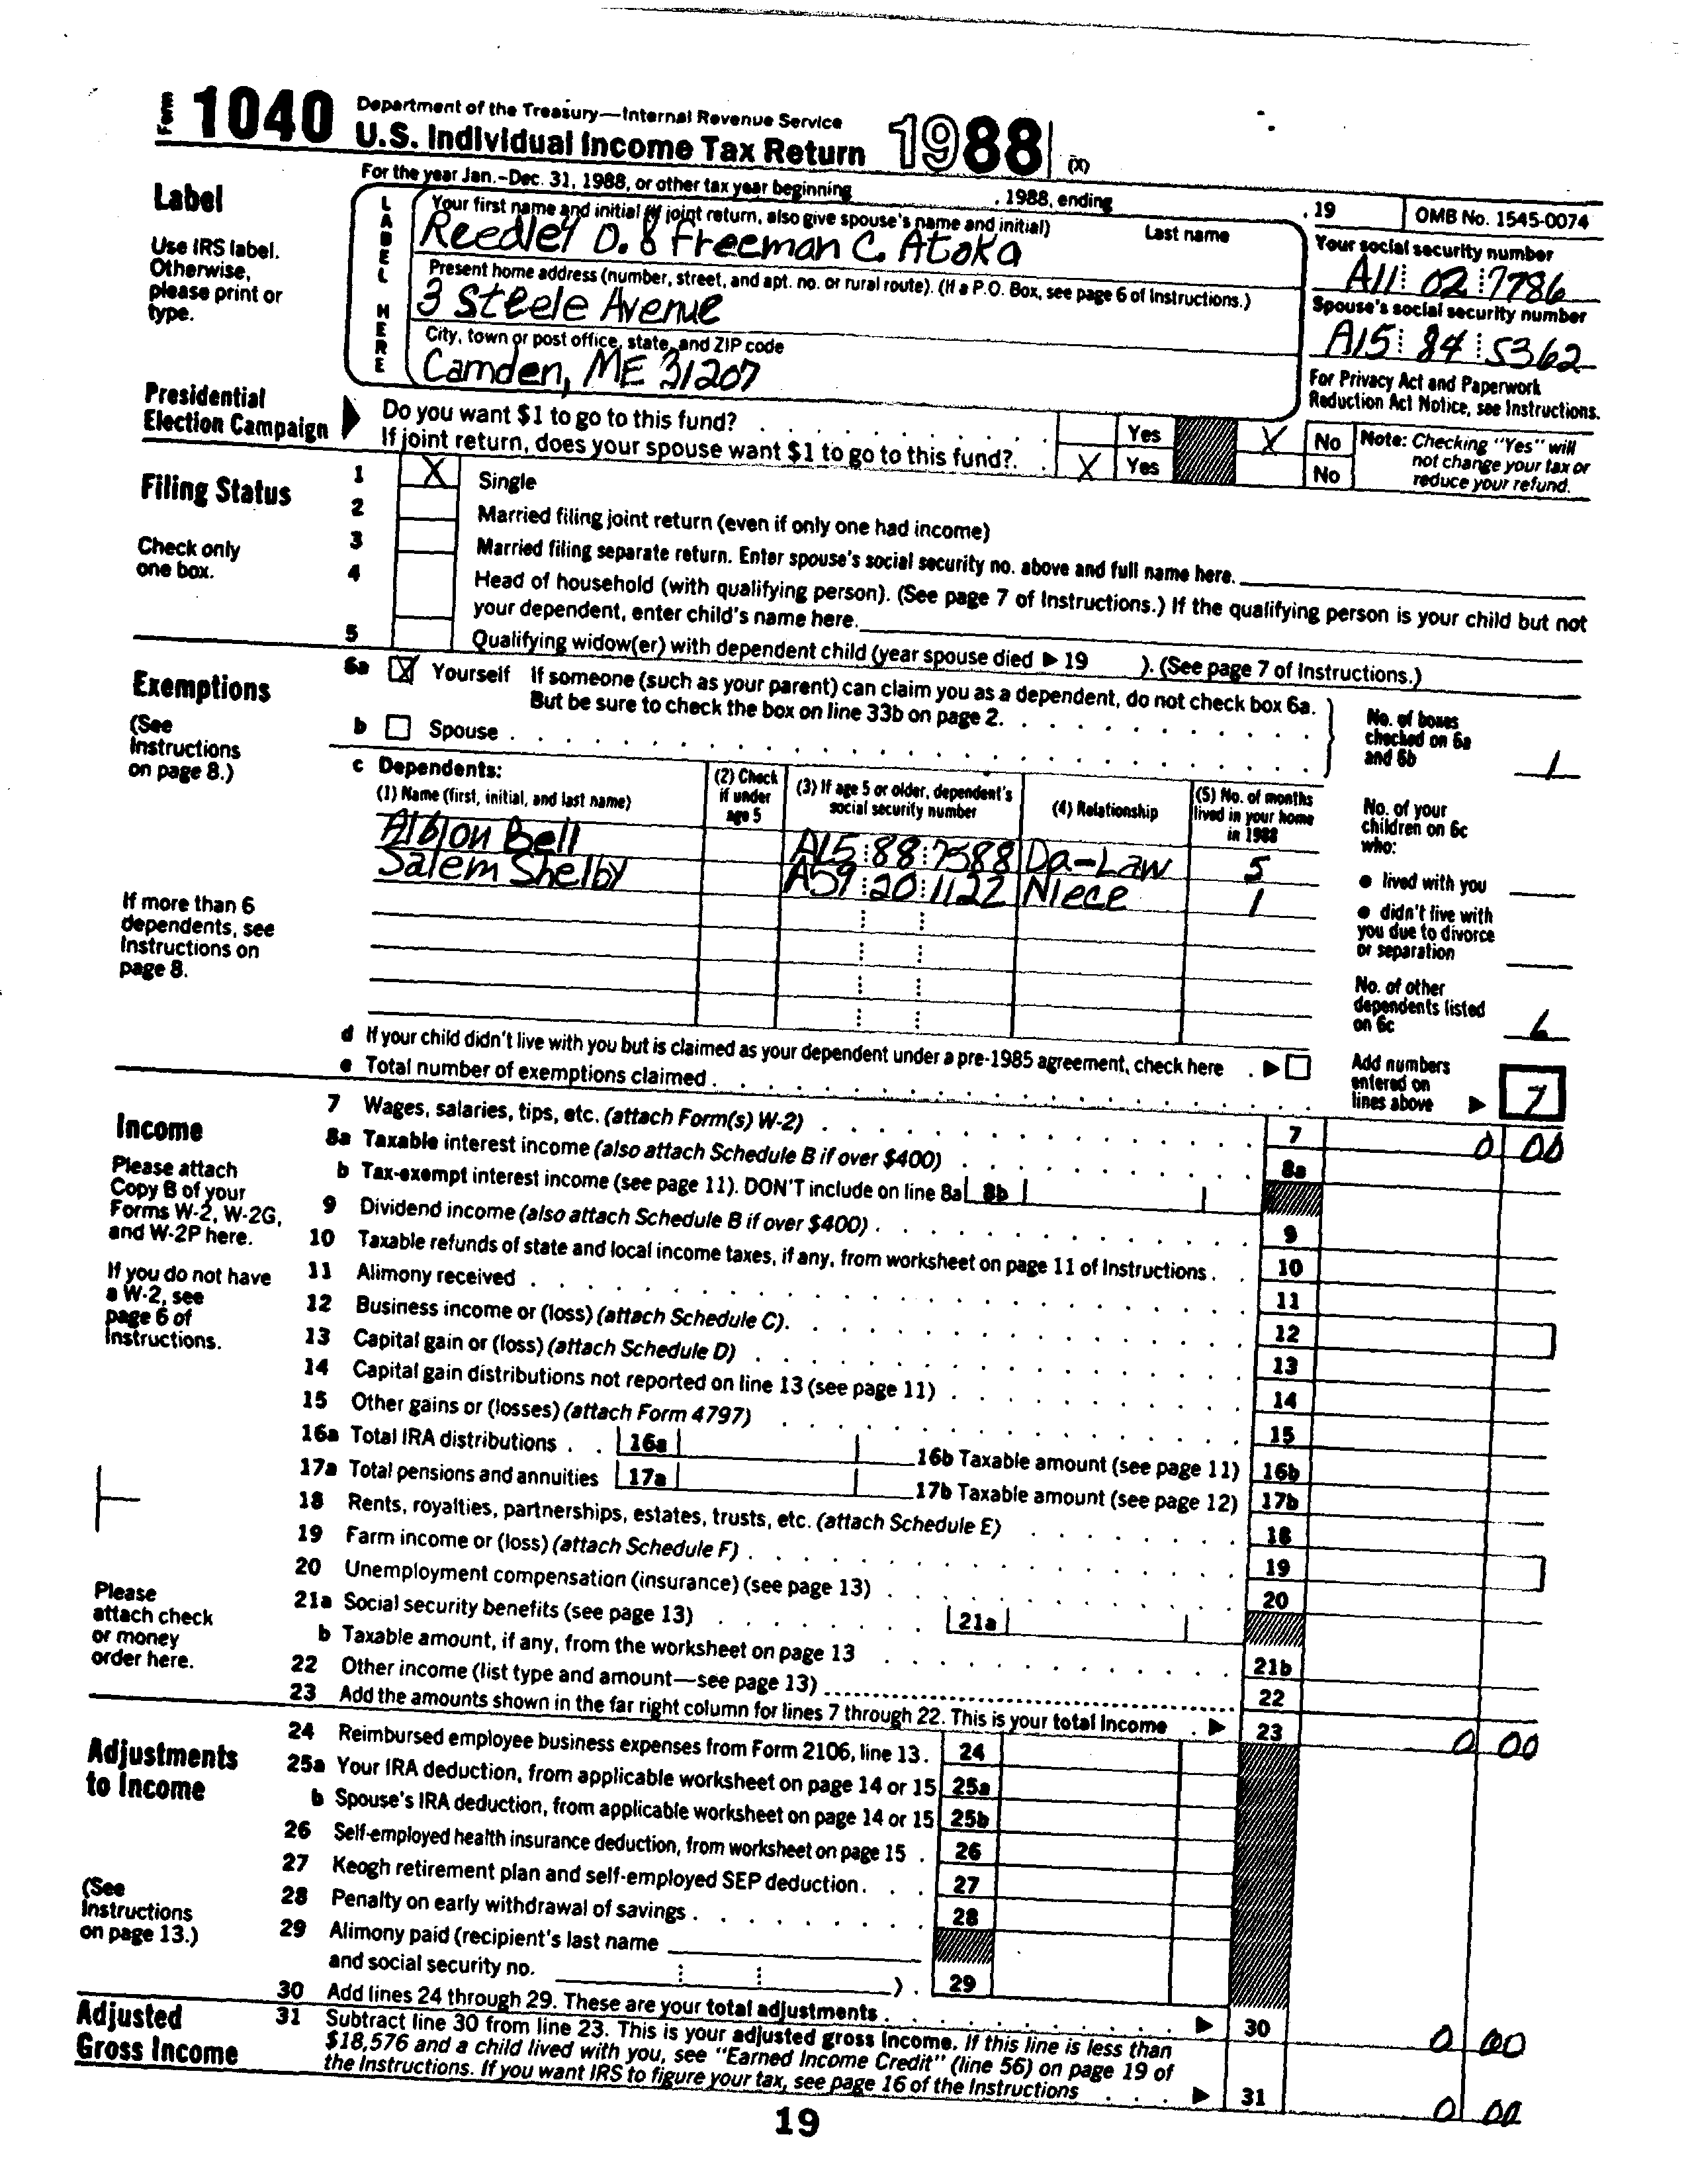 Form 1040 Department of the Treasury—Internal Revenue Service
U.S. Individual Income Tax Return 1988 (X)
For the year Jan.-Dec. 31, 1988, or other tax year beginning , 1988, ending , 19 OMB No. 1545-0074
Label
Use IRS label.
Otherwise,
please print or
type.
LABEL HERE
Your first name and initial (if joint return, also give spouse's name and initial) Last name
Reedley D. & Freeman C. Atoka
Your social security number
A11 02 7786
Present home address (number, street, and apt. no. or rural route). (If a P.O. Box, see page 6 of Instructions.)
3 Steele Avenue
Spouse's social security number
A15 84 5362
City, town or post office, state, and ZIP code
Camden, ME 31207
For Privacy Act and Paperwork
Reduction Act Notice, see Instructions.
Presidential
Election Campaign
Do you want $1 to go to this fund? Yes X No
If joint return, does your spouse want $1 to go to this fund? X Yes No
Note: Checking "Yes" will
not change your tax or
reduce your refund.
Filing Status
Check only
one box.
1 X Single
2 Married filing joint return (even if only one had income)
3 Married filing separate return. Enter spouse's social security no. above and full name here.
4 Head of household (with qualifying person). (See page 7 of Instructions.) If the qualifying person is your child but not
your dependent, enter child's name here.
5 Qualifying widow(er) with dependent child (year spouse died ▶ 19 ). (See page 7 of Instructions.)
Exemptions
(See
Instructions
on page 8.)
6a X Yourself If someone (such as your parent) can claim you as a dependent, do not check box 6a.
But be sure to check the box on line 33b on page 2.
b Spouse
No. of boxes
checked on 6a
and 6b 1
c Dependents:
(1) Name (first, initial, and last name)
(2) Check
if under
age 5
(3) If age 5 or older, dependent's
social security number
(4) Relationship
(5) No. of months
lived in your home
in 1988
Albion Bell A15 88 7588 Da-Law 5
Salem Shelby A59 20 1122 Niece 1
No. of your
children on 6c
who:
● lived with you
● didn't live with
you due to divorce
or separation
No. of other
dependents listed
on 6c 6
If more than 6
dependents, see
Instructions on
page 8.
d If your child didn't live with you but is claimed as your dependent under a pre-1985 agreement, check here ▶
e Total number of exemptions claimed
Add numbers
entered on
lines above ▶ 7
Income
Please attach
Copy B of your
Forms W-2, W-2G,
and W-2P here.
If you do not have
a W-2, see
page 6 of
Instructions.
Please
attach check
or money
order here.
7 Wages, salaries, tips, etc. (attach Form(s) W-2) 7 0 00
8a Taxable interest income (also attach Schedule B if over $400) 8a
b Tax-exempt interest income (see page 11). DON'T include on line 8a 8b
9 Dividend income (also attach Schedule B if over $400) 9
10 Taxable refunds of state and local income taxes, if any, from worksheet on page 11 of Instructions 10
11 Alimony received 11
12 Business income or (loss) (attach Schedule C) 12
13 Capital gain or (loss) (attach Schedule D) 13
14 Capital gain distributions not reported on line 13 (see page 11) 14
15 Other gains or (losses) (attach Form 4797) 15
16a Total IRA distributions 16a 16b Taxable amount (see page 11) 16b
17a Total pensions and annuities 17a 17b Taxable amount (see page 12) 17b
18 Rents, royalties, partnerships, estates, trusts, etc. (attach Schedule E) 18
19 Farm income or (loss) (attach Schedule F) 19
20 Unemployment compensation (insurance) (see page 13) 20
21a Social security benefits (see page 13) 21a
b Taxable amount, if any, from the worksheet on page 13 21b
22 Other income (list type and amount—see page 13) 22
23 Add the amounts shown in the far right column for lines 7 through 22. This is your total income ▶ 23 0 00
Adjustments
to Income
(See
Instructions
on page 13.)
24 Reimbursed employee business expenses from Form 2106, line 13. 24
25a Your IRA deduction, from applicable worksheet on page 14 or 15 25a
b Spouse's IRA deduction, from applicable worksheet on page 14 or 15 25b
26 Self-employed health insurance deduction, from worksheet on page 15 26
27 Keogh retirement plan and self-employed SEP deduction 27
28 Penalty on early withdrawal of savings 28
29 Alimony paid (recipient's last name
and social security no. ) 29
30 Add lines 24 through 29. These are your total adjustments ▶ 30 0 00
Adjusted
Gross Income
31 Subtract line 30 from line 23. This is your adjusted gross income. If this line is less than
$18,576 and a child lived with you, see "Earned Income Credit" (line 56) on page 19 of
the Instructions. If you want IRS to figure your tax, see page 16 of the Instructions ▶ 31 0 00
19